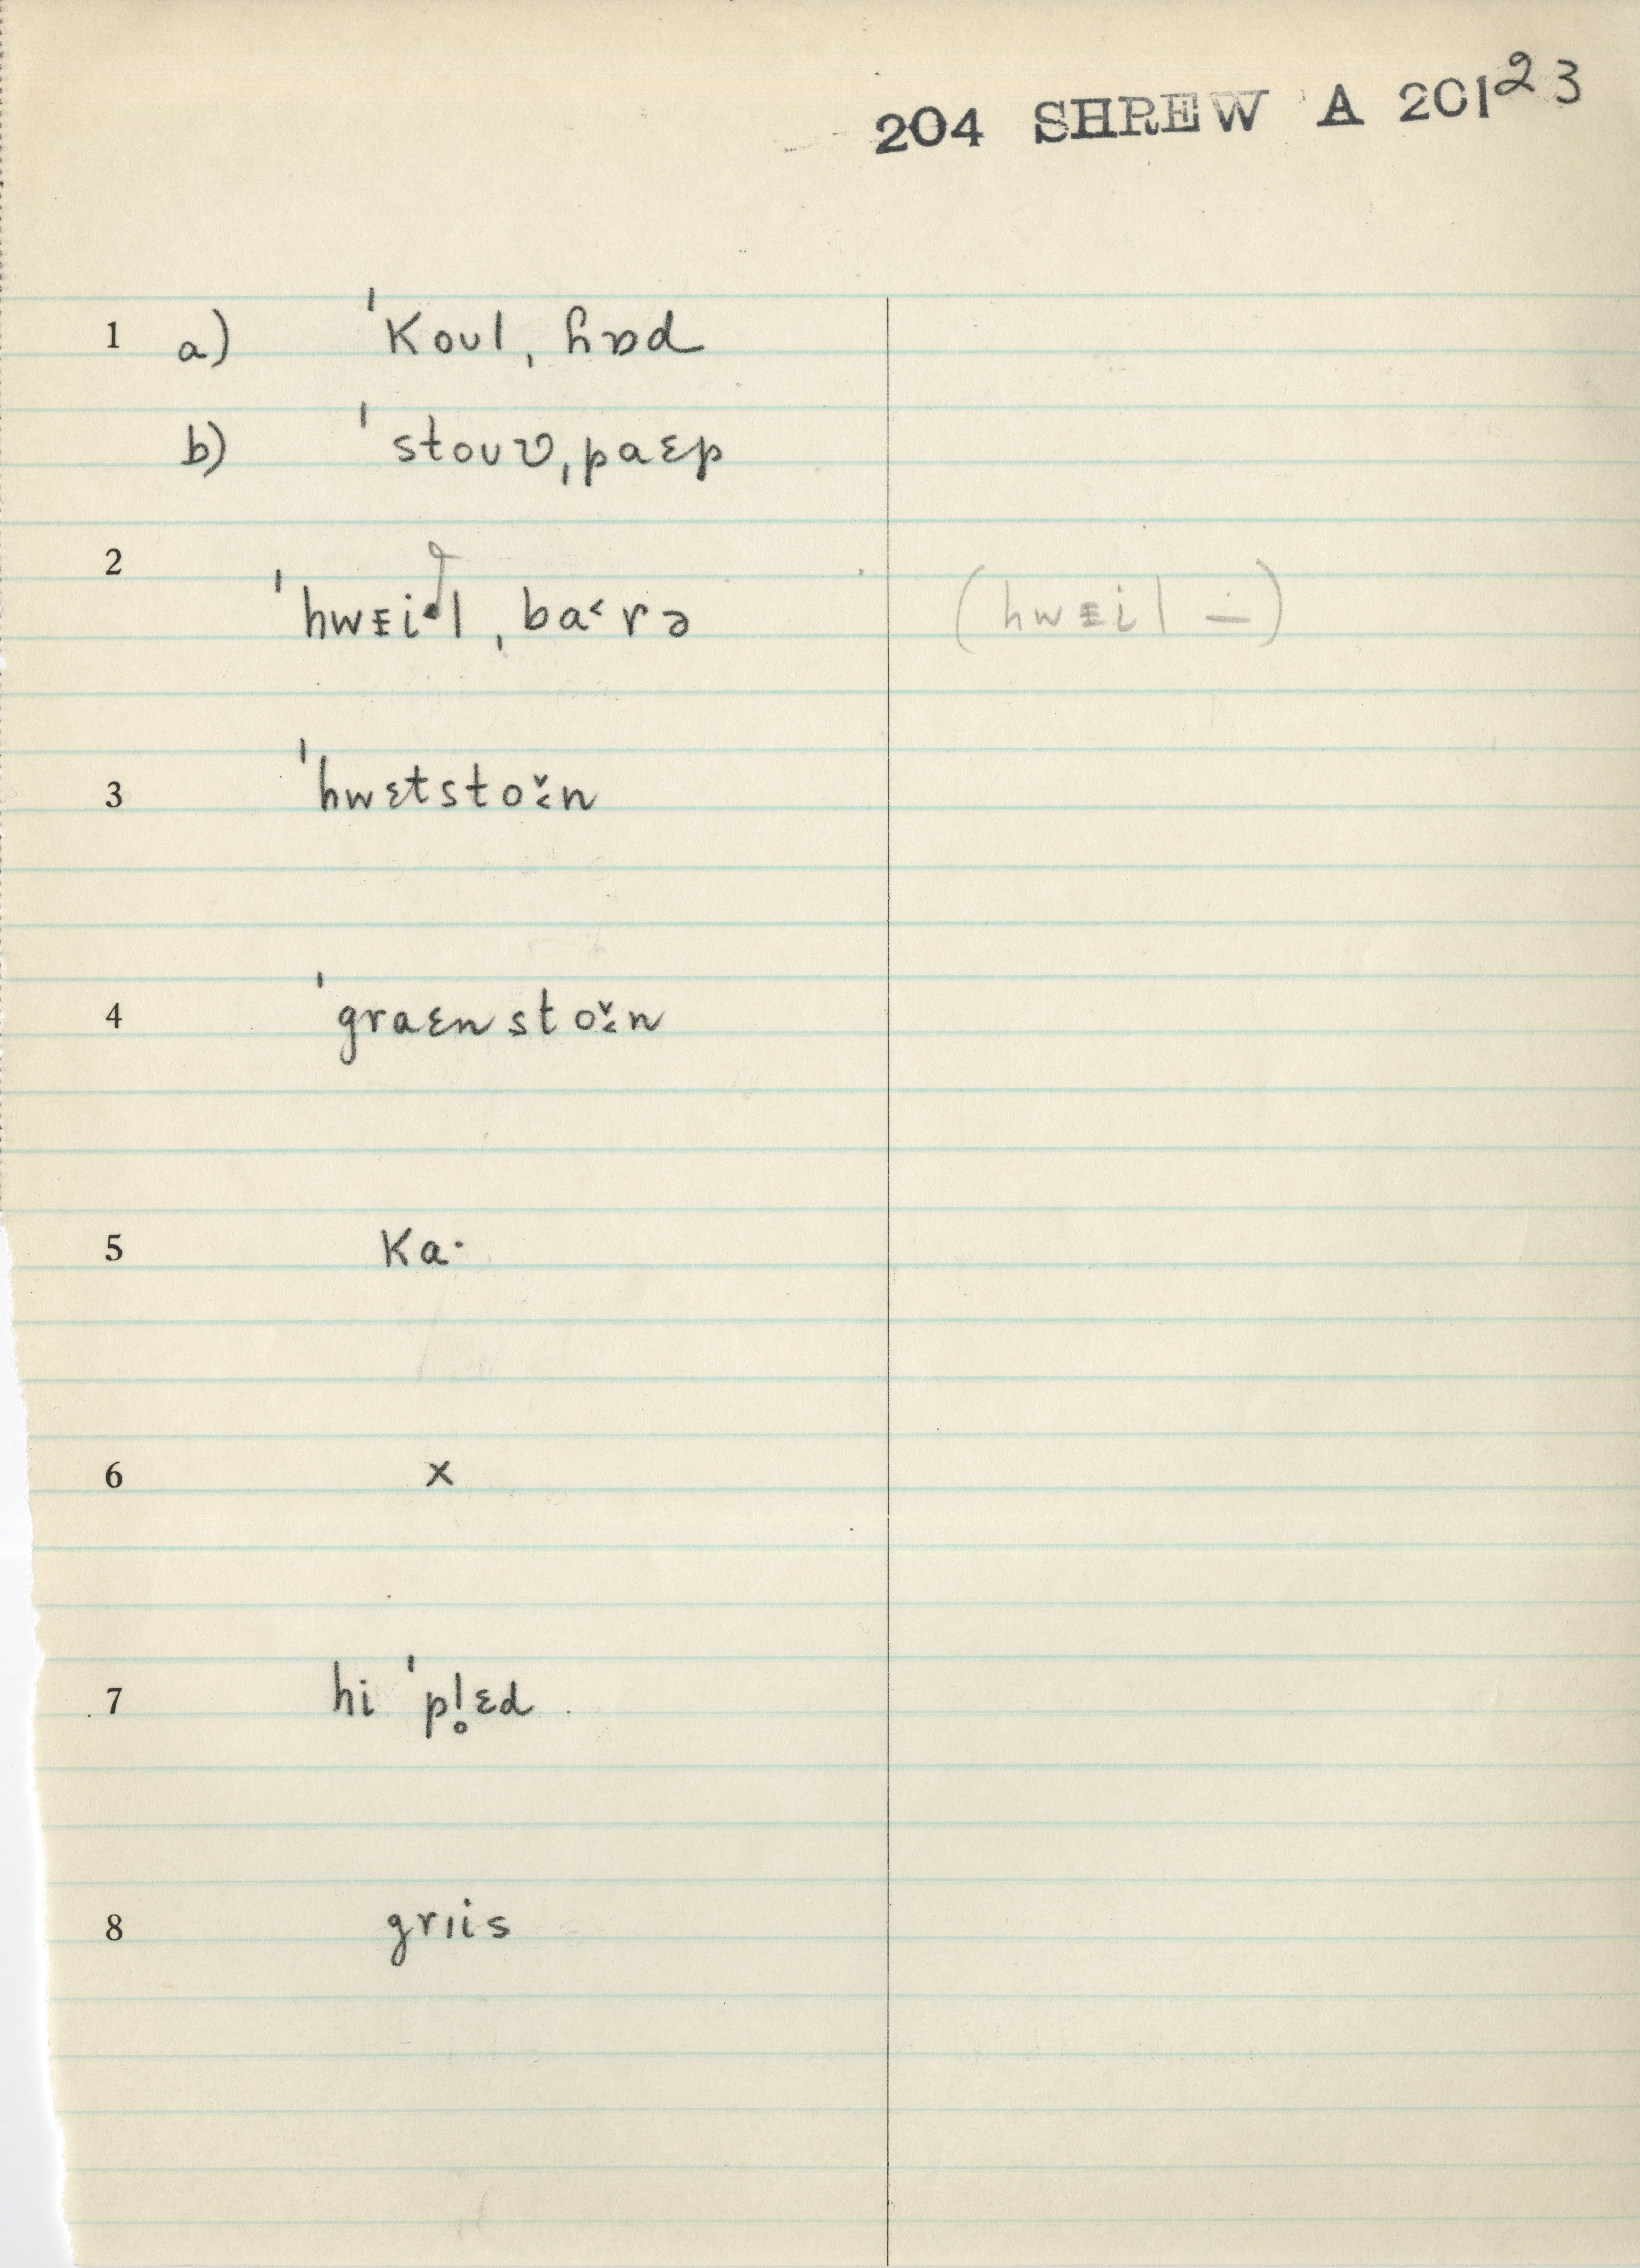 204 SHREW A 201 23
1 a) ˈkoʊl ˌɦɒd
b) ˈstoʊʋˌpaɛp
2 ˈhwᵻi·lˌba˂rə (hwᵻil –)
3 ˈhwɛtstoɪ̌n
4 ˈgraɛnstoɪ̌n
5 ka·
6 x
7 hi ˈpl̥ɛd
8 grɪis